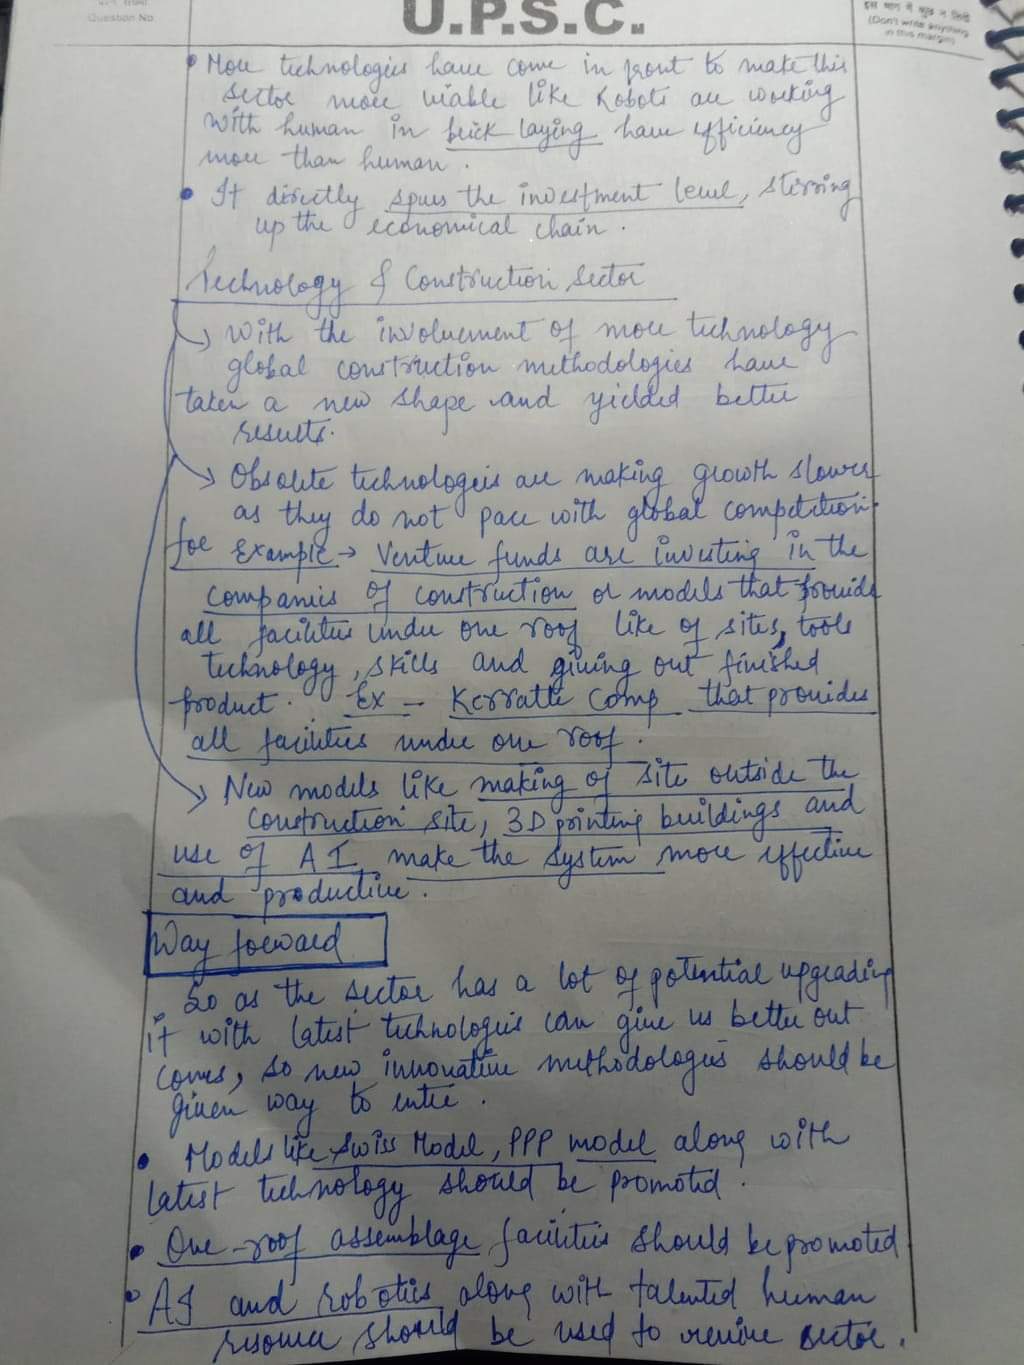 U.P.S.C.
Question No
(Don't write anything
in this margin)
• More technologies have come in front to make this
sector more viable like Robots are working
with human in brick laying have efficiency
more than human.
• It directly spurs the investment level, stirring
up the economical chain.
Technology & Construction Sector
→ With the involvement of more technology
global construction methodologies have
taken a new shape and yielded better
results.
→ Obsolete technologies are making growth slower
as they do not pace with global competition.
for Example → Venture funds are investing in the
companies of construction or models that provide
all facilities under one roof like of sites, tools
technology, skills and giving out finished
product. Ex - Comp that provides
all facilities under one roof.
→ New models like making of site outside the
construction site, 3D printing buildings and
use of AI make the system more effective
and productive.
Way forward
So as the sector has a lot of potential upgrading
it with latest technologies can give us better out
comes, so new innovative methodologies should be
given way to enter.
• Models like Swiss Model, PPP model along with
latest technology should be promoted.
• One-roof assemblage facilities should be promoted
• AI and robotics along with talented human
resource should be used to revive sector.